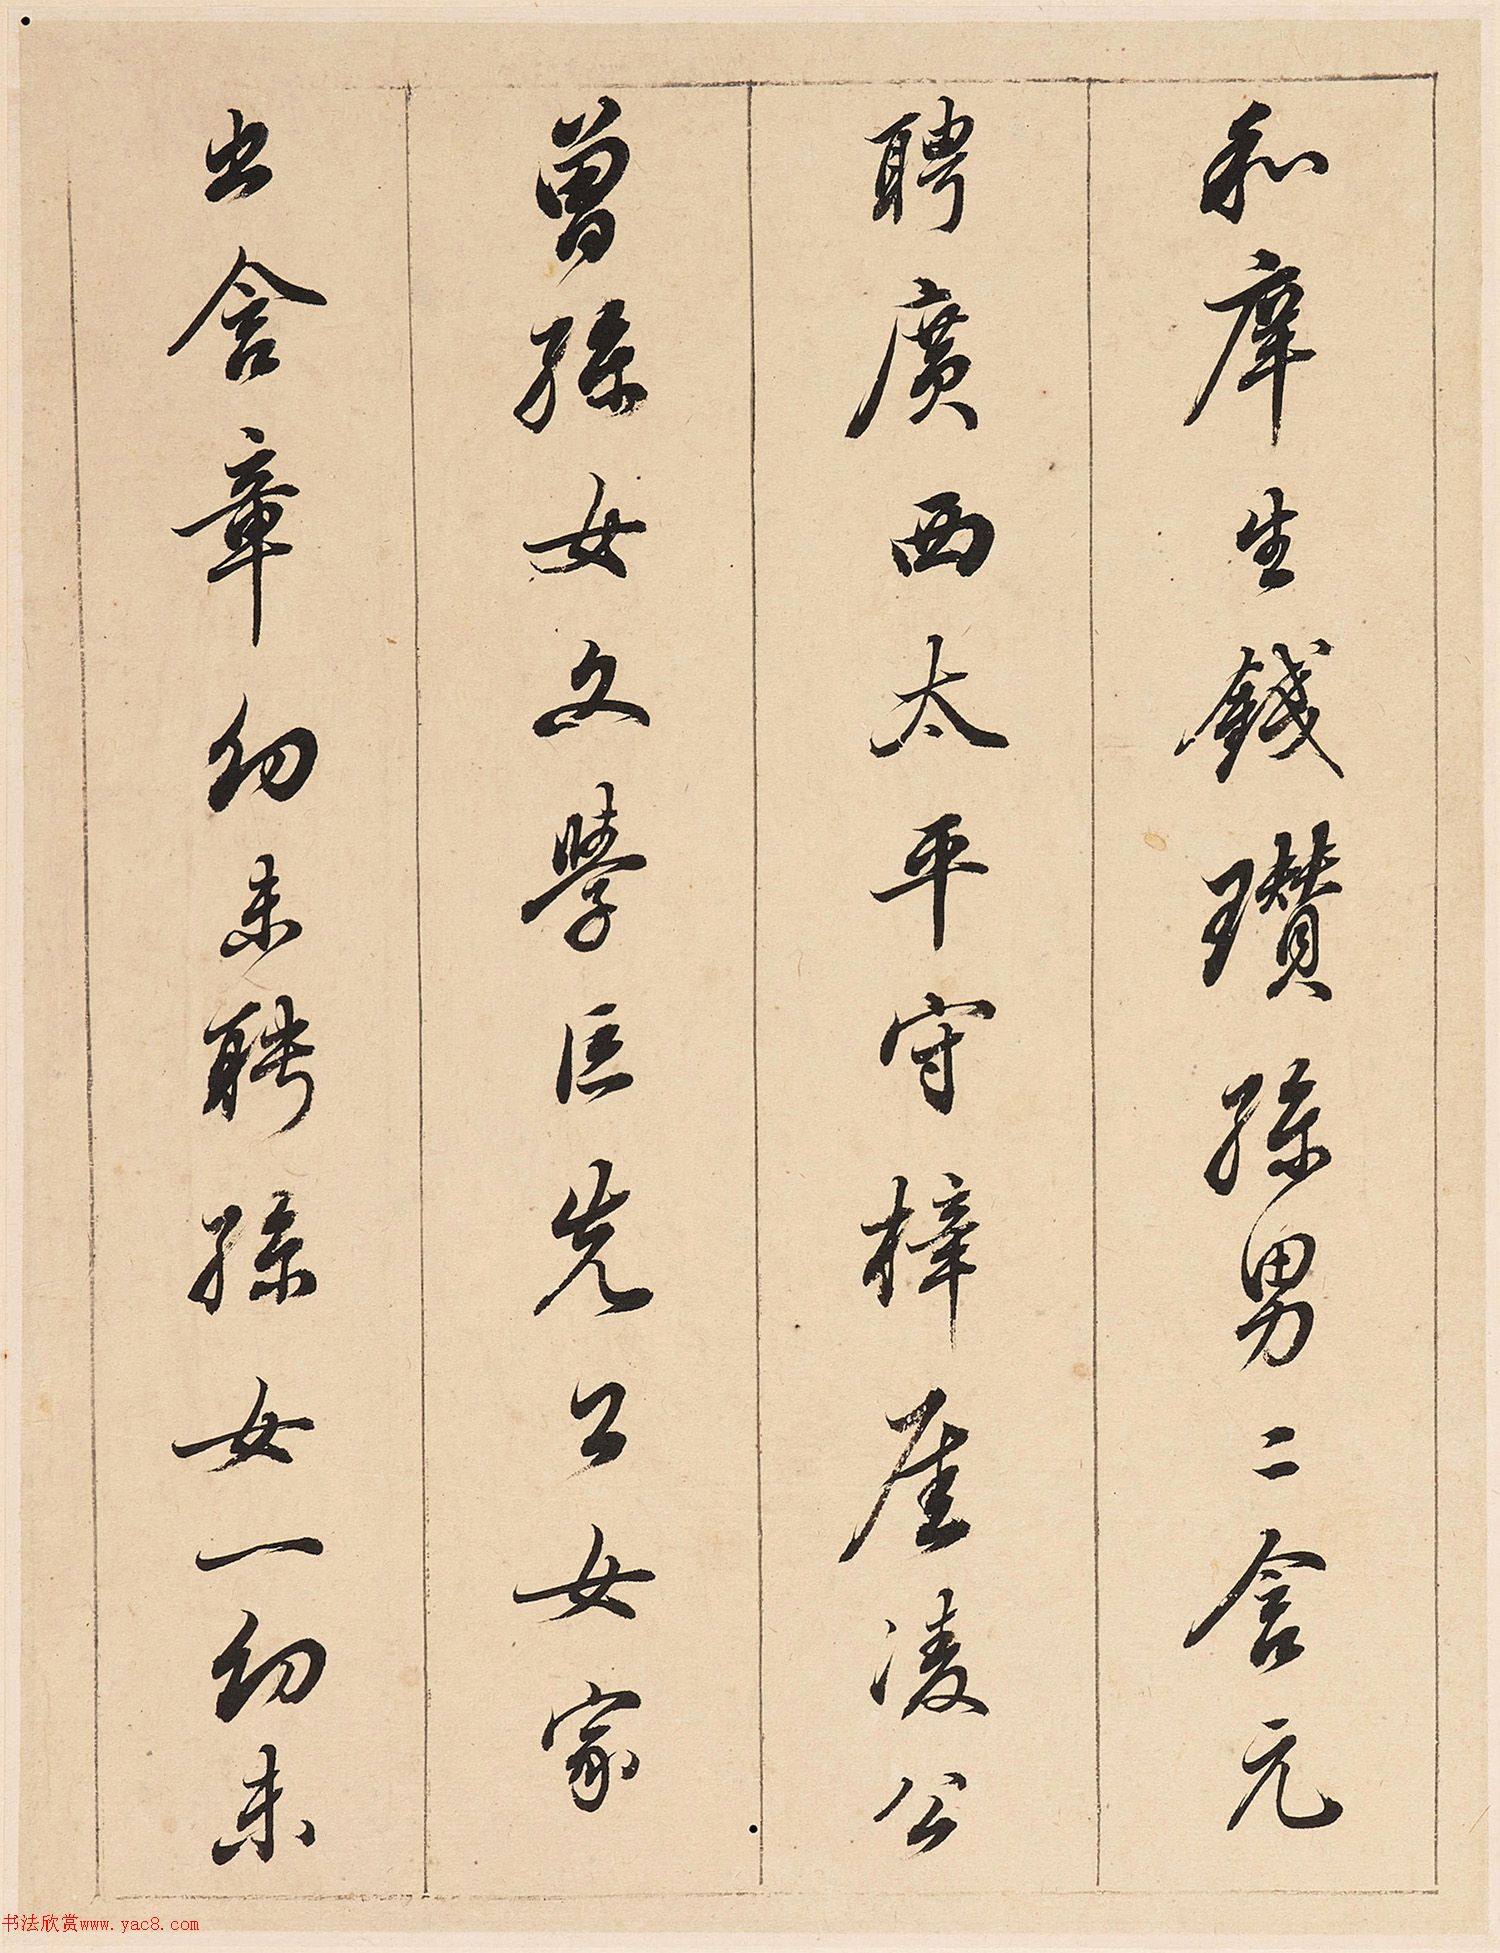 和庠生錢瓚孫男二含元
聘廣西太平守梓厓凌公
曾孫女文學臣先公女家
出含章幼未聘孫女一幼未
书法欣赏www.yac8.com